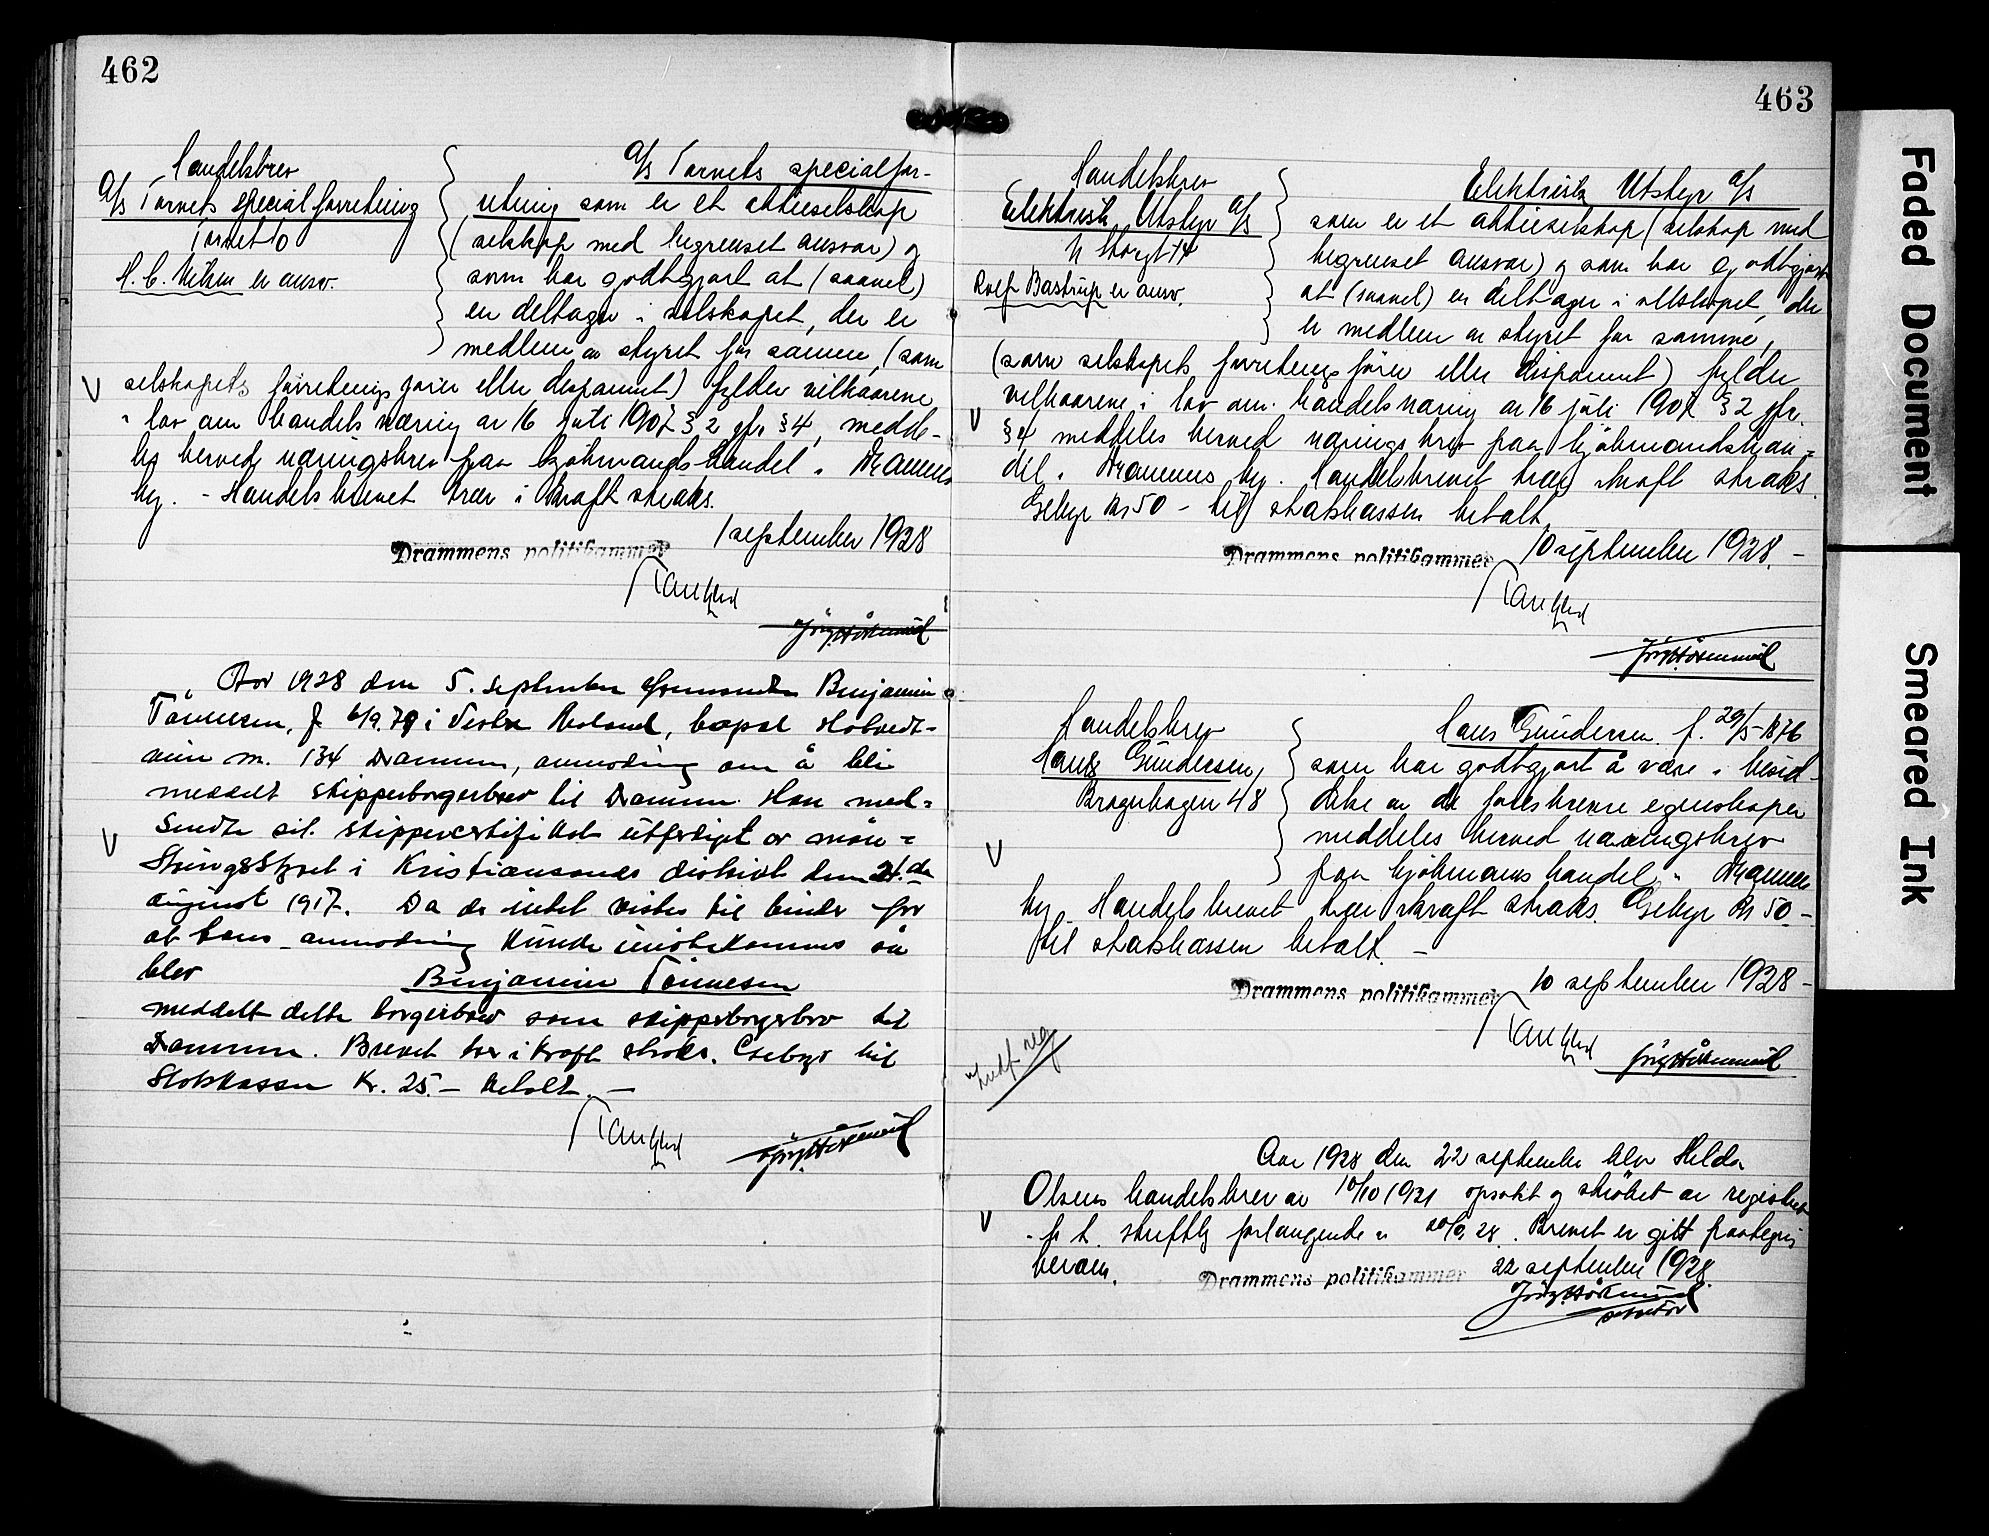 462
Handelsbrev
A/s Torvets specialforretning
Torvet 10
H. C. er ansv.
A/s Torvets specialfor-
retning som er et aktieselskap
(selskap med begrenset ansvar) og
som har godtgjort at (saavel)
en deltager i selskapet, der er
medlem av styret for samme, (som
selskapets forretningsfører eller disponent) fylder vilkaarene
i lov om handelsnæring av 16 juli 1907 § 2 jfr § 4, medde-
les herved næringsbrev paa kjøbmandshandel i Drammens
by. - Handelsbrevet trær i kraft straks.
Drammens politikammer 1 september 1928
Aar 1928 den 5. september fremsendte Benjamin
Tönnesen, f. 6/9.79 i Vestre Moland, bopæl Hotvedt-
veien nr. 134 Drammen, anmodning om å bli
meddelt skipperborgerbrev til Drammen. Han med-
sendte sit skippercertifikat utferdiget av mön-
stringsstyret i Kristiansands distrikt den 21. de
august 1917. Da der intet vistes til hinder for
at hans anmodning kunde imötekommes så
blev Benjamin Tönnesen
meddelt dette borgerbrev som skipperborgerbrev til
Drammen. Brevet trer i kraft straks. Gebyr til
Statskassen Kr. 25.- betalt. -
463
Handelsbrev
Elektrisk Utstyr A/s
N Storgt 14
Rolf Bastrup er ansv.
Elektrisk Utstyr A/s
som er et aktieselskap (selskap med
begrenset ansvar) og som har godtgjort
at (saavel) en deltager i selskapet, der
er medlem av styret for samme,
(som selskapets forretningsfører eller disponent) fylder
vilkaarene i lov om handelsnæring av 16 juli 1907 § 2 jfr.
§ 4 meddeles herved næringsbrev paa kjøbmandshan-
del i Drammens by. Handelsbrevet trær i kraft straks.
Gebyr kr 50 - til statskassen betalt.
Drammens politikammer 10 september 1928. -
Handelsbrev
Hans Gundersen,
Bragerhagen 48
Hans Gundersen f. 29/5-1876
som har godtgjort å være i besid-
delse av de foreskrevne egenskaper
meddeles herved næringsbrev
paa kjøbmandshandel i Drammens
by. Handelsbrevet trær i kraft straks. Gebyr kr 50 -
til statskassen betalt. -
Drammens politikammer 10 september 1928 -
Aar 1928 den 22 september blev Hilda
Olsens handelsbrev av 10/10 1921 opsakt og strøket av registret
i h. t. skriftlig forlangende av 20/9 28. Brevet er gitt paategning
herom.
Drammens politikammer 22 september 1928.
Faded Document
Smeared Ink